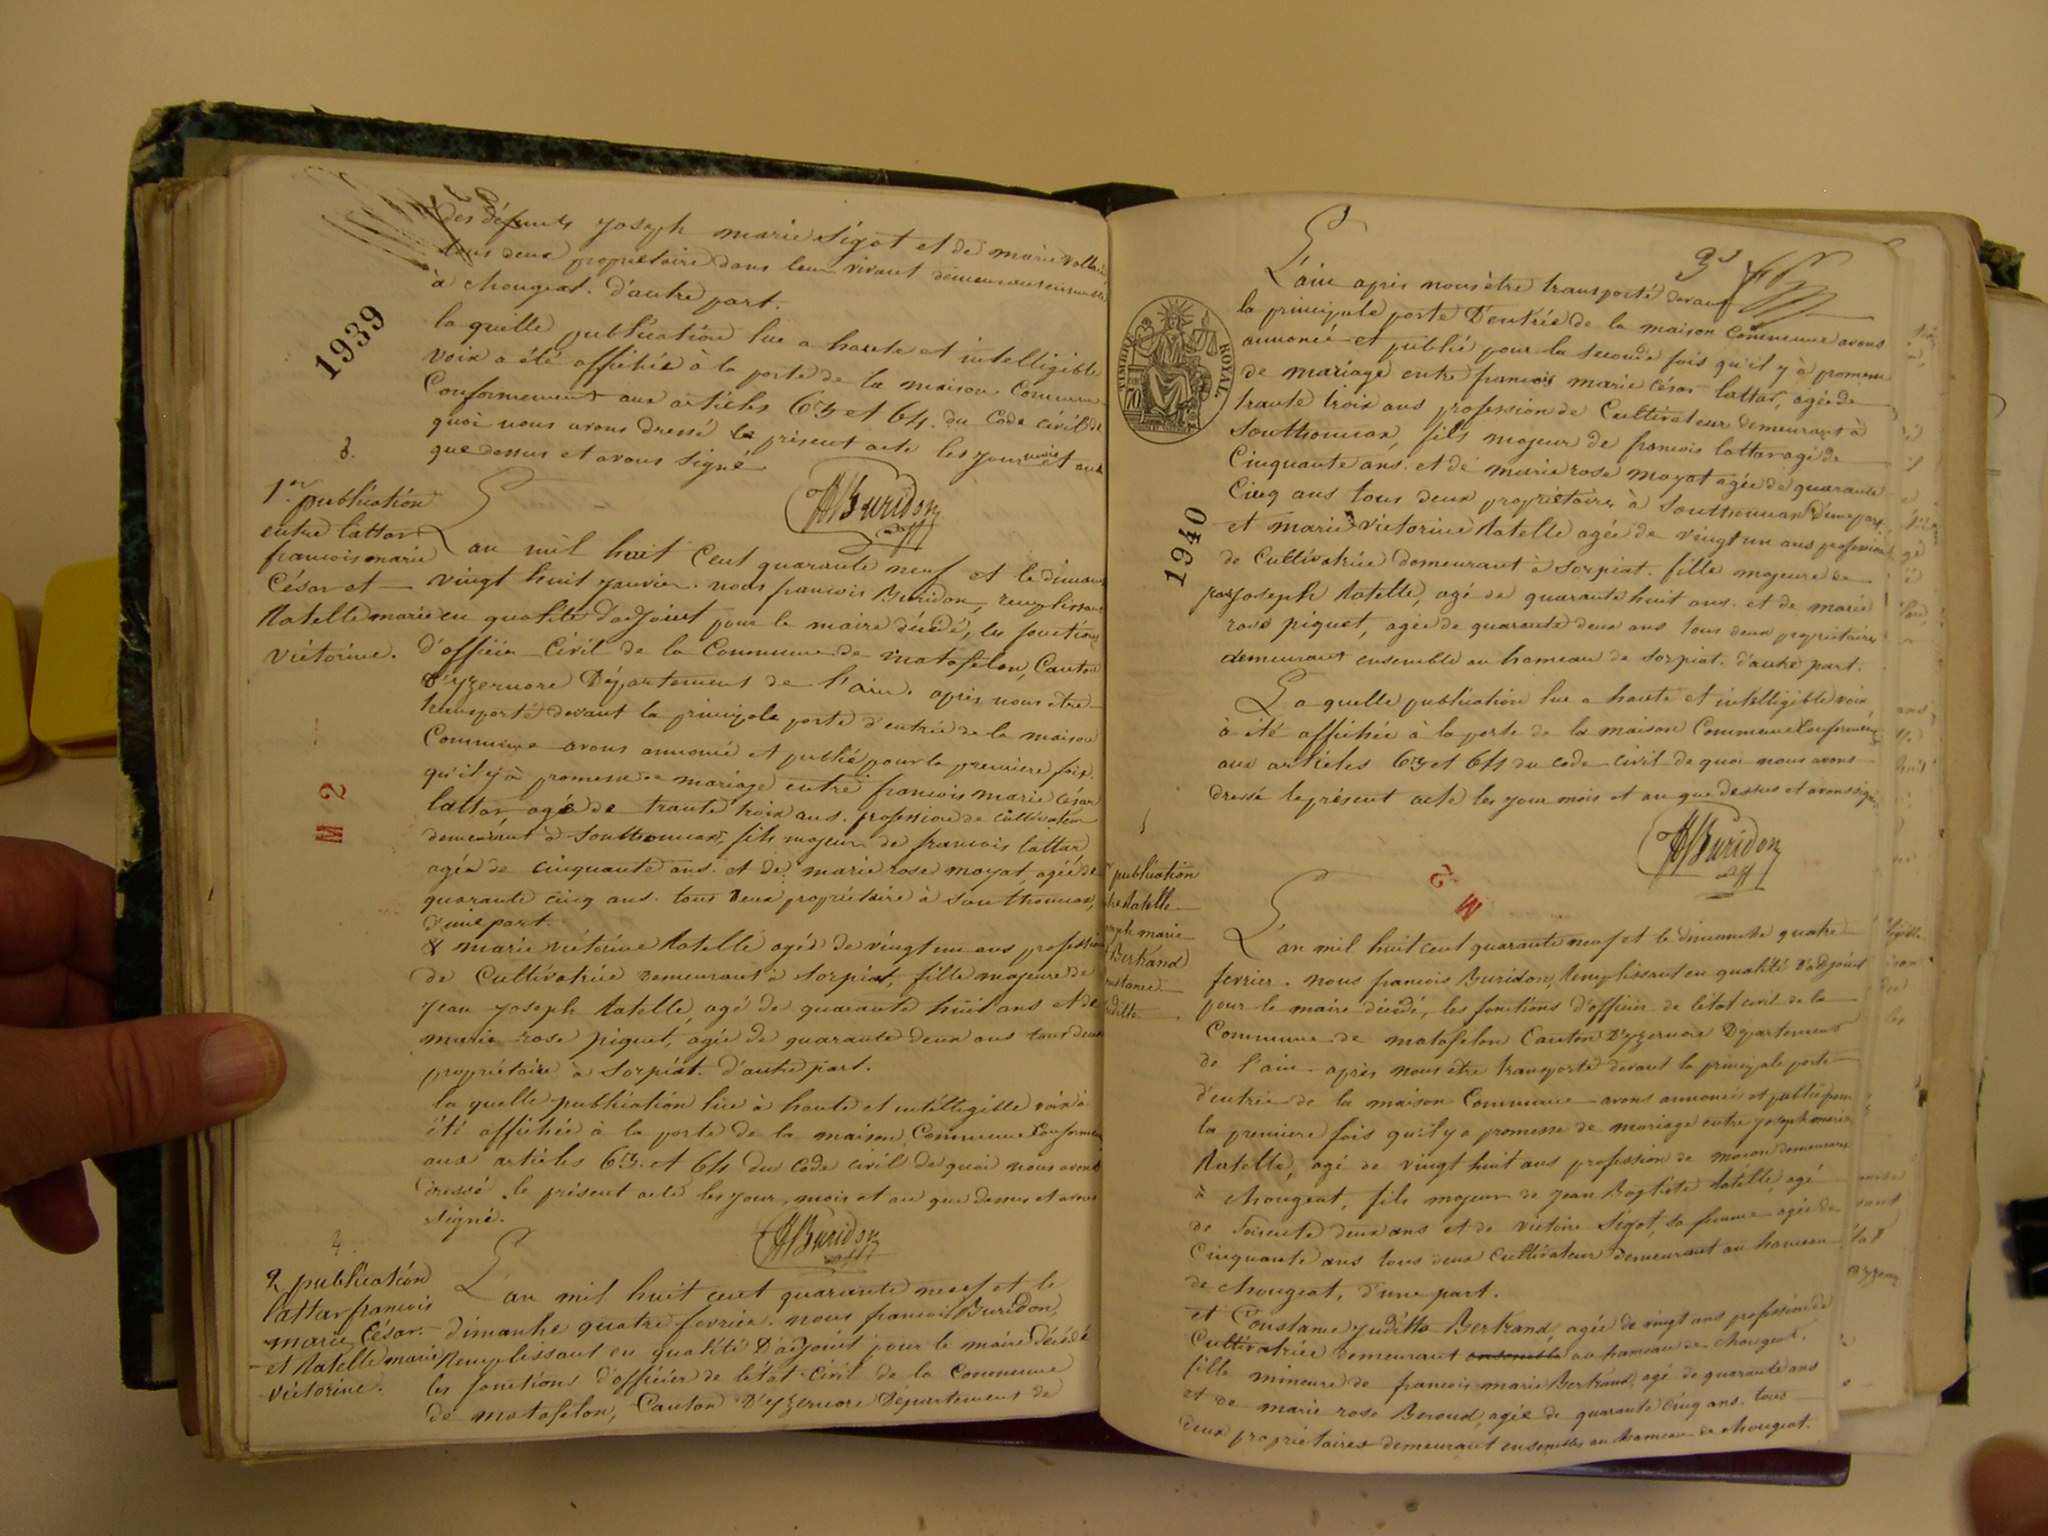 des défunts Joseph marie Sigot et de marie
tous deux propriétaire dans leur vivant
à Chougeat. d'autre part.
1939
la quelle publication lue a haute et intelligible
voix a été affichée à la porte de la maison Commune
Conformement aux articles 63 et 64 du Code civil de
quoi nous avons dressé le présent acte les jour mois et an
que dessus et avons signé
fBuridon
adjt
3.
1re publication
entre lattar
francois marie
César et
Ratelle marie
victorine.
L'an mil huit Cent quarante neuf et le dimanche
vingt huit Janvier. nous francois Buridon, remplissant
en qualité D'adjoint pour le maire décédé, les fonctions
d'officier Civil de la Commune de matafelon, Canton
D'yzernore Département de l'ain. après nous être
transporté devant la principale porte d'entrée de la maison
Commune avons annoncé et publié pour la premiere fois
qu'il y à promesse de mariage entre francois marie César
lattar, agée de trante trois ans. profession de cultivateur
demeurant à Southonnax, fils majeur de francois lattar
agée de cinquante ans. et de marie rose moyat, agée de
quarante cinq ans. tous deux propriétaire à Southonnax,
D'une part.
M 2
& marie victorine Ratelle agée de vingt un ans profession
de Cultivatrice demeurant à Sorpiat, fille majeure de
Jean Joseph Ratelle, agé de quarante huit ans et de
marie rose piquet, agée de quarante deux ans tous deux
propriétaire à Sorpiat. d'autre part.
la quelle publication lue à haute et intelligible voix à
été affichée à la porte de la maison Commune Conformement
aux articles 63 et 64 du Code civil de quoi nous avons
dressé le présent acte les jour mois et an que dessus et avons
signé.
fBuridon
adjt
4.
2 publication
lattar francois
marie César
et Ratelle marie
victorine.
L'an mil huit cent quarante neuf et le
dimanche quatre fevrier. nous francois Buridon,
Remplissant en qualité D'adjoint pour le maire décédé
les fonctions d'officier de l'état civil de la Commune
de matafelon, Canton D'yzernore Département de
L'ain après nous être transporté devant
la principale porte D'entrée de la maison Commune avons
annoncé et publié pour la seconde fois qu'il y à promesse
de mariage entre francois marie César lattar, agée de
trante trois ans profession de Cultivateur demeurant à
Southonnax, fils majeur de francois lattar agé de
Cinquante ans. et de marie rose moyat agée de quarante
Cinq ans tous deux propriétaire à Southonnax D'une part.
et marie victorine Ratelle agée de vingt un ans profession
de Cultivatrice demeurant à Sorpiat. fille majeure de
Joseph Ratelle, agé de quarante huit ans. et de marie
rose piquet, agée de quarante deux ans tous deux propriétaires
demeurant ensemble au hameau de Sorpiat. d'autre part.
TIMBRE ROYAL
70
1940
La quelle publication lue a haute et intelligible voix
à été affichée à la porte de la maison Commune Conformément
aux articles 63 et 64 du code civil de quoi nous avons
dressé le présent acte les jour mois et an que dessus et avons signé
fBuridon
adjt
M 2
publication
Ratelle
marie
Bertrand
L'an mil huit cent quarante neuf et le dimanche quatre
fevrier. nous francois Buridon, Remplissant en qualité D'adjoint
pour le maire décédé, les fonctions d'officier de l'état civil de la
Commune de matafelon Canton D'yzernore Département
de l'ain. après nous être transporté devant la principale porte
d'entrée de la maison Commune avons annoncé et publié pour
la premiere fois qu'il y a promesse de mariage entre Joseph marie
Ratelle, agé de vingt huit ans profession de macon demeurant
à Chougeat, fils majeur de Jean Baptiste Ratelle, agé
de soixante deux ans et de victoire Sigot, sa femme agée de
Cinquante ans tous deux Cultivateur demeurant au hameau
de Chougeat, d'une part.
et Constance Juditte Bertrand, agée de vingt ans profession de
Cultivatrice demeurant ensemble au hameau de Chougeat.
fille mineure de francois marie Bertrand, agé de quarante ans
et de marie rose Beroud, agée de quarante cinq ans. tous
deux propriétaires demeurant ensembles au hameau de Chougeat.